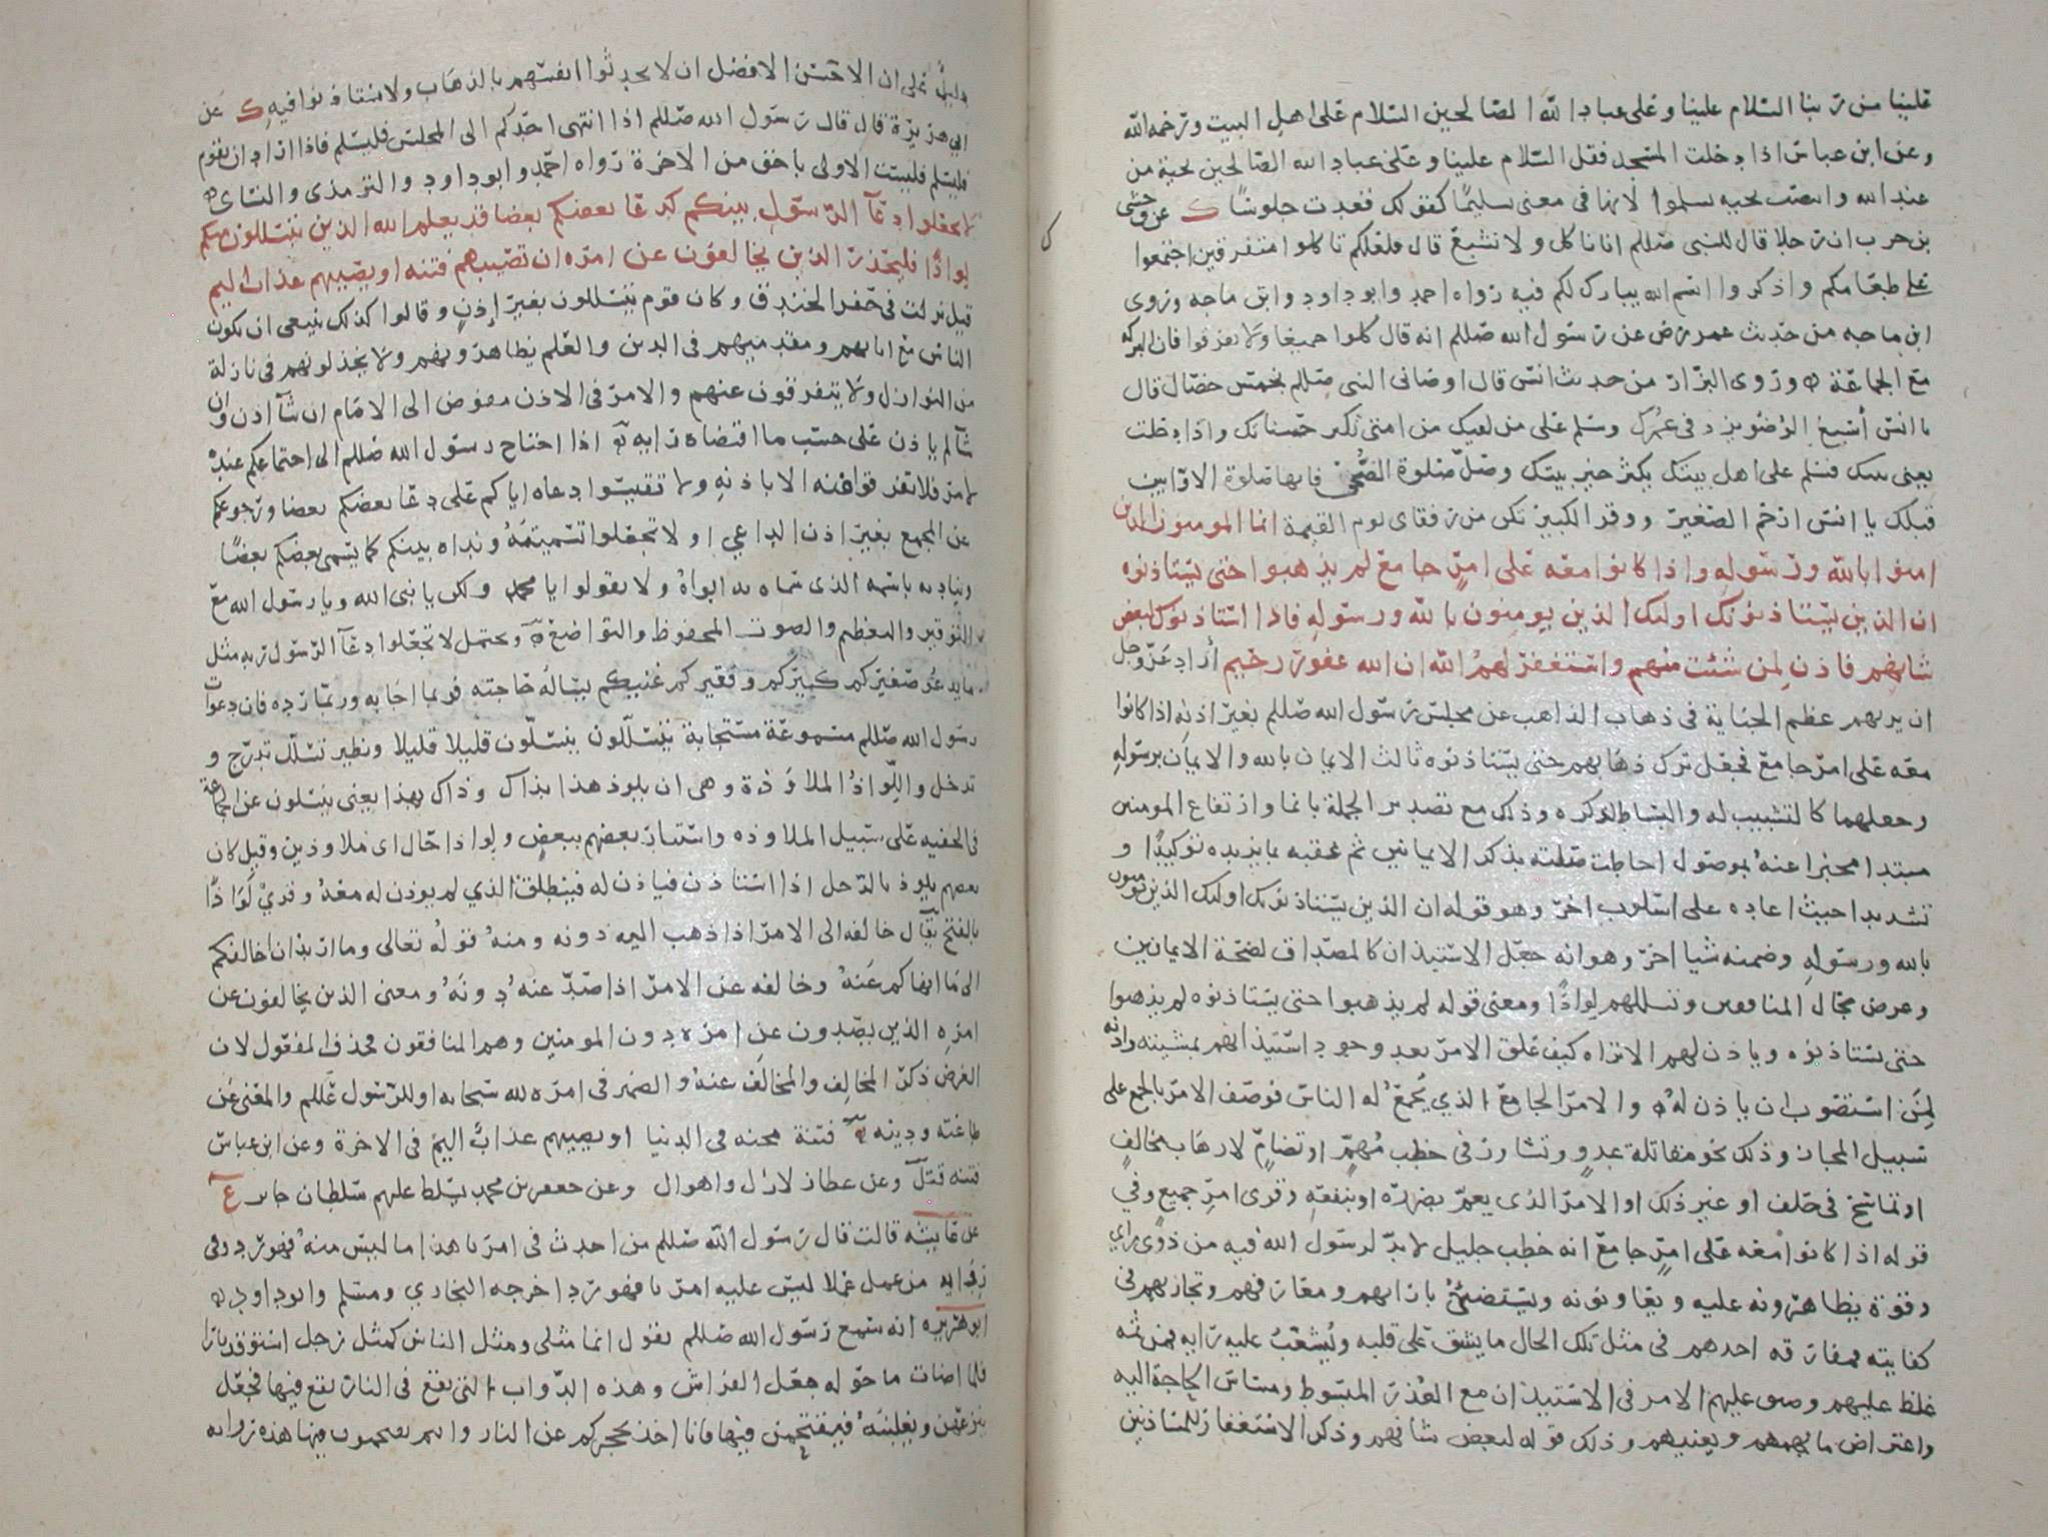 علينا من ربنا السلام علينا وعلى عباد الله الصالحين السلام على اهل البيت ورحمة الله
وعن ابن عباس اذا دخلت المسجد فقل السلام علينا وعلى عباد الله الصالحين تحية من
عند الله وانتصب تحيه بسلموا لانها فى معنى تسليمًا كقولك قعدت جلوسًا ك عن وحشى
بن حرب ان رجلا قال للنبى صللم انا ناكل ولا نشبع قال فلعلكم تاكلوا متفرقين اجتمعوا
على طعامكم واذكروا اسم الله يبارك لكم فيه رواه احمد وابو داود وابن ماجه وروى
ابن ماجه من حديث عمر رض عن رسول الله صللم انه قال كلوا جميعا ولا تفرقوا فان البركه
مع الجماعة ه وروى البزار من حديث انس قال اوصانى النبى صللم بخمس خصال قال
يا انس أسبغ الوضو يزد فى عمرك وسلم على من لقيك من امتى تكثر حسناتك واذا دخلت
يعنى بيتك فسلم على اهل بيتك يكثر خير بيتك وصلّ صلوة الضحى فانها صلوة الاوابين
قبلك يا انس ارحم الصغير ووقر الكبير تكن من رفقاى يوم القيمة انما المومنون الذين
امنوا بالله ورسوله واذا كانوا معه على امرٍ جامع لم يذهبوا حتى يستاذنوه
ان الذين يستاذنونك اولئك الذين يومنون بالله ورسوله فاذا استاذنوك لبعض
شانهم فاذن لمن شئت منهم واستغفر لهم الله ان الله غفور رحيم أراد عز وجل
ان يريهم عظم الجناية فى ذهاب الذاهب عن مجلس رسول الله صللم بغير اذنه اذا كانوا
معه على امر جامع فجعل ترك ذهابهم حتى يستاذنوه ثالث الايمان بالله والايمان برسوله
وجعلهما كالتشبيب له والبساط لذكره وذلك مع تصدير الجملة بانما وارتفاع المومنين
مبتدا مخبرا عنه بموصول احاطت صلته بذكر الايمانين ثم عقبه بما يزيده توكيدًا و
تشديدا حيث اعاده على اسلوب اخر وهو قوله ان الذين يستاذنونك اولئك الذين يومنون
بالله ورسوله وضمنه شيا اخر وهو انه جعل الاستيذان كالمصداق لصحة الايمانين
وعرض بحال المنافقين وتسللهم لواذًا ومعنى قوله لم يذهبوا حتى يستاذنوه لم يذهبوا
حتى يستاذنوه وياذن لهم الا تراه كيف علق الامر بعد وجود استيذانهم بمشيته واذنه
لمن استصوب ان ياذن له ه والامر الجامع الذي يُجمعُ له الناس فوصف الامر بالجمع على
سبيل المجاز وذلك نحو مقاتلة عدوٍ وتشاور فى خطب مُهمٍّ او تضامٍّ لارهاب مخالفٍ
او تماسح فى حلف او غير ذلك او الامر الذى يعم بضرره او بنفعه وقرى امرٍ جميعٍ وفي
قوله اذا كانوا معه على امرٍ جامع انه خطب جليل لا بدّ لرسول الله فيه من ذوى راي
وقوة يظاهرونه عليه ويعاونونه ويستضئ بارائهم ومعارفهم وتجاربهم فى
كفايته فمفارقة احدهم فى مثل تلك الحال ما يشق على قلبه ويُشعّث عليه رايه فمن ثمه
غلظ عليهم وضيق عليهم الامر فى الاستيذان مع العذر المبسوط ومساس الحاجة اليه
واعتراض ما يهمهم ويعنيهم وذلك قوله لبعض شانهم وذكر الاستغفار للمستاذنين
دليلٌ على ان الاحسن الافضل ان لا يحدثوا انفسهم بالذهاب ولا يستاذنوا فيه ك عن
ابى هريرة قال قال رسول الله صللم اذا انتهى احدكم الى المجلس فليسلم فاذا اراد ان يقوم
فليسلم فليست الاولى باحق من الاخرة رواه احمد وابو داود والترمذى والنساى ه
لا تجعلوا دعآ الرسول بينكم كدعا بعضكم بعضا قد يعلم الله الذين يتسللون منكم
لواذًا فليحذر الذين يخالفون عن امره ان تصيبهم فتنه او يصيبهم عذاب اليم
قيل نزلت فى حفر الخندق وكان قوم يتسللون بغير إذنٍ وقالوا كذلك ينبغى ان يكون
الناس مع ايمتهم ومقدميهم فى الدين والعلم يظاهرونهم ولا يخذلونهم فى نازلة
من النوازل ولا يتفرقون عنهم والامر فى الاذن مفوض الى الامام ان شآ اذن وان
شآ لم ياذن على حسب ما اقتضاه رايه اذا احتاج رسول الله صللم الى اجتماعكم عنده
لامر فلا تفرقوا عنه الا باذنه ولا تقيسوا دعاه اياكم على دعا بعضكم بعضا ورجوعكم
عن المجمع بغير اذن الداعي او لا تجعلوا تسميته ونداه بينكم كما يسمى بعضكم بعضًا
ويناديه باسمه الذى سماه به ابواه ولا يقولوا يا محمد ولكن يا نبى الله ويا رسول الله مع
التوقير والتعظيم والصوت المخفوظ والتواضع ويحتمل لا تجعلوا دعآ الرسول ربه مثل
ما يدعو صغيركم كبيركم وفقيركم غنيكم يساله حاجته فربما اجابه وربما رده فان دعوات
رسول الله صللم مسموعة مستجابة يتسللون ينسلون قليلا قليلا ونظير تسلل تدرج و
تدخل واللواذُ الملاوذة وهى ان يلوذ هذا بذاك وذاك بهذا يعنى ينسلون عن الجماعة
فى الخفيه على سبيل الملاوذه واستتار بعضهم ببعض ولواذا حال اى ملاوذين وقيل كان
بعضهم يلوذ بالرجل اذا استاذن فياذن له فينطلق الذي لم يوذن له معه وقرئ لَوَاذًا
بالفتح يقال خالفه الى الامر اذا ذهب اليه دونه ومنه قوله تعالى وما اريد ان اخالفكم
الى ما انهاكم عنه وخالفه عن الامر اذا صدّ عنه دونه ومعنى الذين يخالفون عن
امره الذين يصدون عن امره دون المومنين وهم المنافقون فحذف المفعول لان
الغرض ذكر المخالِف والمخالَف عنه والضمير فى امره لله سبحانه او للرسول عللم والمعنى عن
طاعته ودينه فتنة محنه فى الدنيا او يصيبهم عذاب اليم فى الاخرة وعن ابن عباس
فتنه قتل وعن عطا زلازل واهوال وعن جعفر بن محمد يسلط عليهم سلطان جاير ع
عن عايشه قالت قال رسول الله صللم من احدث فى امرنا هذا ما ليس منه فهو رد وفى
روايه من عمل عملا ليس عليه امرنا فهو رد اخرجه البخاري ومسلم وابو داود ه
ابو هريره انه سمع رسول الله صللم يقول انما مثلى ومثل الناس كمثل رجل استوقد نارا
فلما اضات ما حوله جعل الفراش وهذه الدواب التى تقع فى النار يقع فيها فجعل
ينزعهن ويغلبنه فيقتحمن فيها فانا اخذ بحجزكم عن النار وانتم تقتحمون فيها هذه روايه